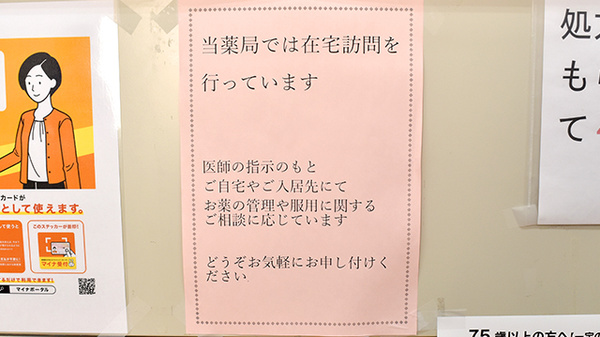 当薬局では在宅訪問を
行っています
医師の指示のもと
ご自宅やご入居先にて
お薬の管理や服用に関する
ご相談に応じています
どうぞお気軽にお申し付けく
ださい
カードが
として使えます。
このステッカーが目印!
マイナ受付
マイナポータル
処
も
て
75歳以上の方へ